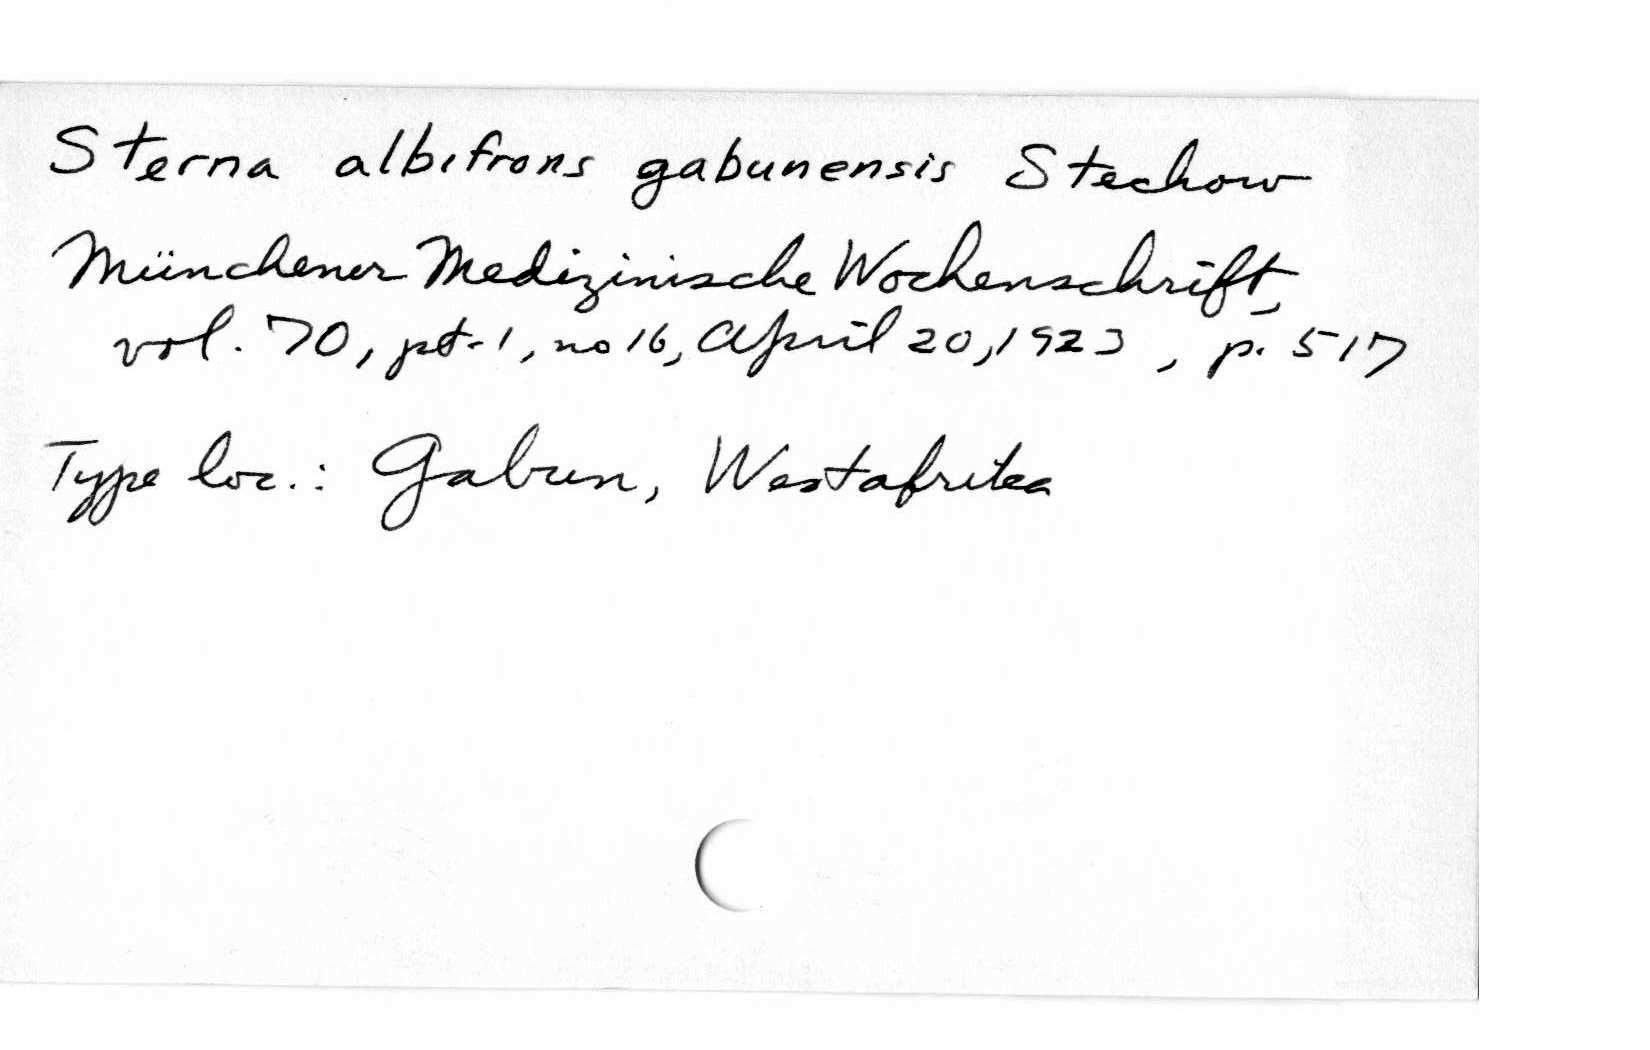 Sterna albifrons gabunensis Stechow
Münchener Medizinische Wochenschrift,
vol. 70, pt. 1, no 16, April 20, 1923, p. 517
Type loc.: Gabun, Westafrika